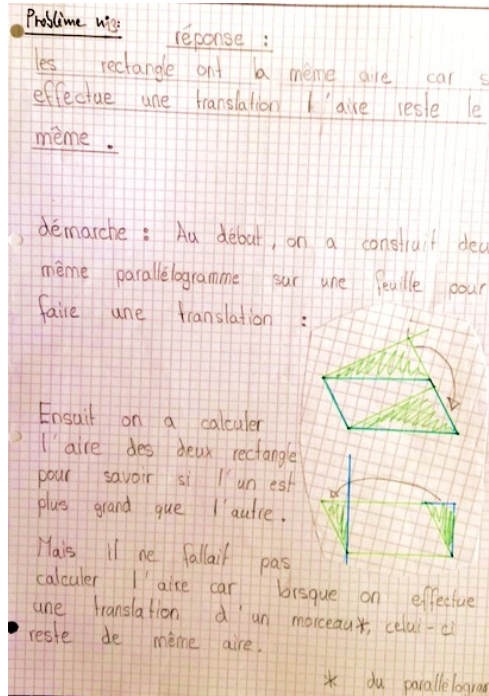 Problème n°3:
réponse :
les rectangle ont la même aire car s
effectue une translation l'aire reste le
même.
démarche : Au début, on a construit deu
même parallélogramme sur une feuille pour
faire une translation :
Ensuit on a calculer
l'aire des deux rectangle
pour savoir si l'un est
plus grand que l'autre.
Mais il ne fallait pas
calculer l'aire car lorsque on effectue
une translation d'un morceau*, celui-ci
reste de même aire.
* du parallélogram